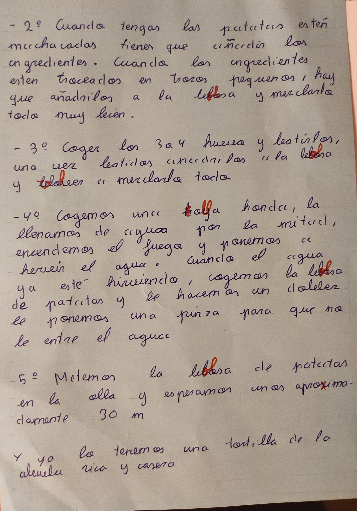 - 2º Cuando tengas las patatas esteñ
machacadas tienes que añadir los
ingredientes. Cuando los ingredientes
esten troceados en trozos pequeños, hay
que añadirlos a la bolsa y mezclarlo
todo muy bien.
- 3º Coger los 3 o 4 huevos y batirlos,
una vez batidos añadirlos a la bolsa
y a mezclarlo todo
- 4º Cogemos una olla honda, la
llenamos de agua por la mitad,
encendemos el fuego y ponemos a
hervir el agua. Cuando el agua
ya esté hirviendo, cogemos la bolsa
de patatas y le hacemos un doblez
le ponemos una pinza para que no
le entre el agua
- 5º Metemos la bolsa de patatas
en la olla y esperamos unos aproxima-
damente 30 m
Y ya la tenemos una tortilla de la
abuela rica y casera